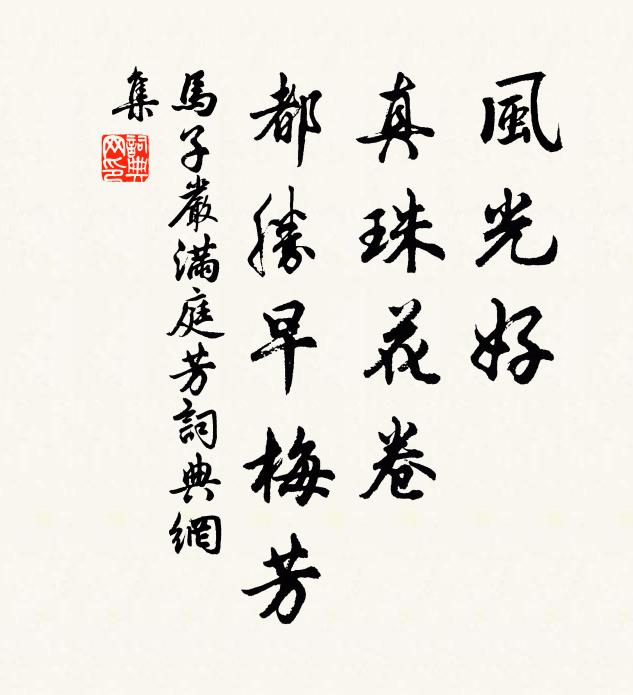 風光好
真珠花卷
都勝早梅芳
馬子嚴滿庭芳詞典網
集
詞典
网印